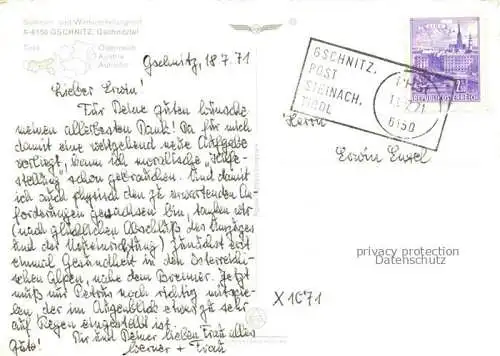 Sommer- und Wintererholungsort
A-6150 GSCHNITZ, Gschnitztal
Tirol
Österreich
Austria
Autriche
Gschnitz, 18.7.71
Lieber Erwin!
Für Deine guten Wünsche
meinen allerbesten Dank! Da für mich
damit eine weitgehend neue Aufgabe
vorliegt, kann ich moralische "Hilfe-
stellung" schon gebrauchen. Und damit
ich auch physisch den zu erwartenden An-
forderungen gewachsen bin, tanken wir
(nach glücklichem Abschluß des Umzuges
und der Neueinrichtung) zunächst erst
einmal Gesundheit in den österreichi-
schen Alpen, nahe dem Brenner. Jetzt
muß nur Petrus noch richtig mitspie-
len, der im Augenblick etwas zu sehr
auf Regen eingestellt ist.
Dir und Deiner lieben Frau alles
Gute!
Werner + Frau
GSCHNITZ.
POST
STEINACH.
TIROL
6150
REPUBLIK ÖSTERREICH
Herrn
Erwin Enzel
privacy protection
Datenschutz
X1671